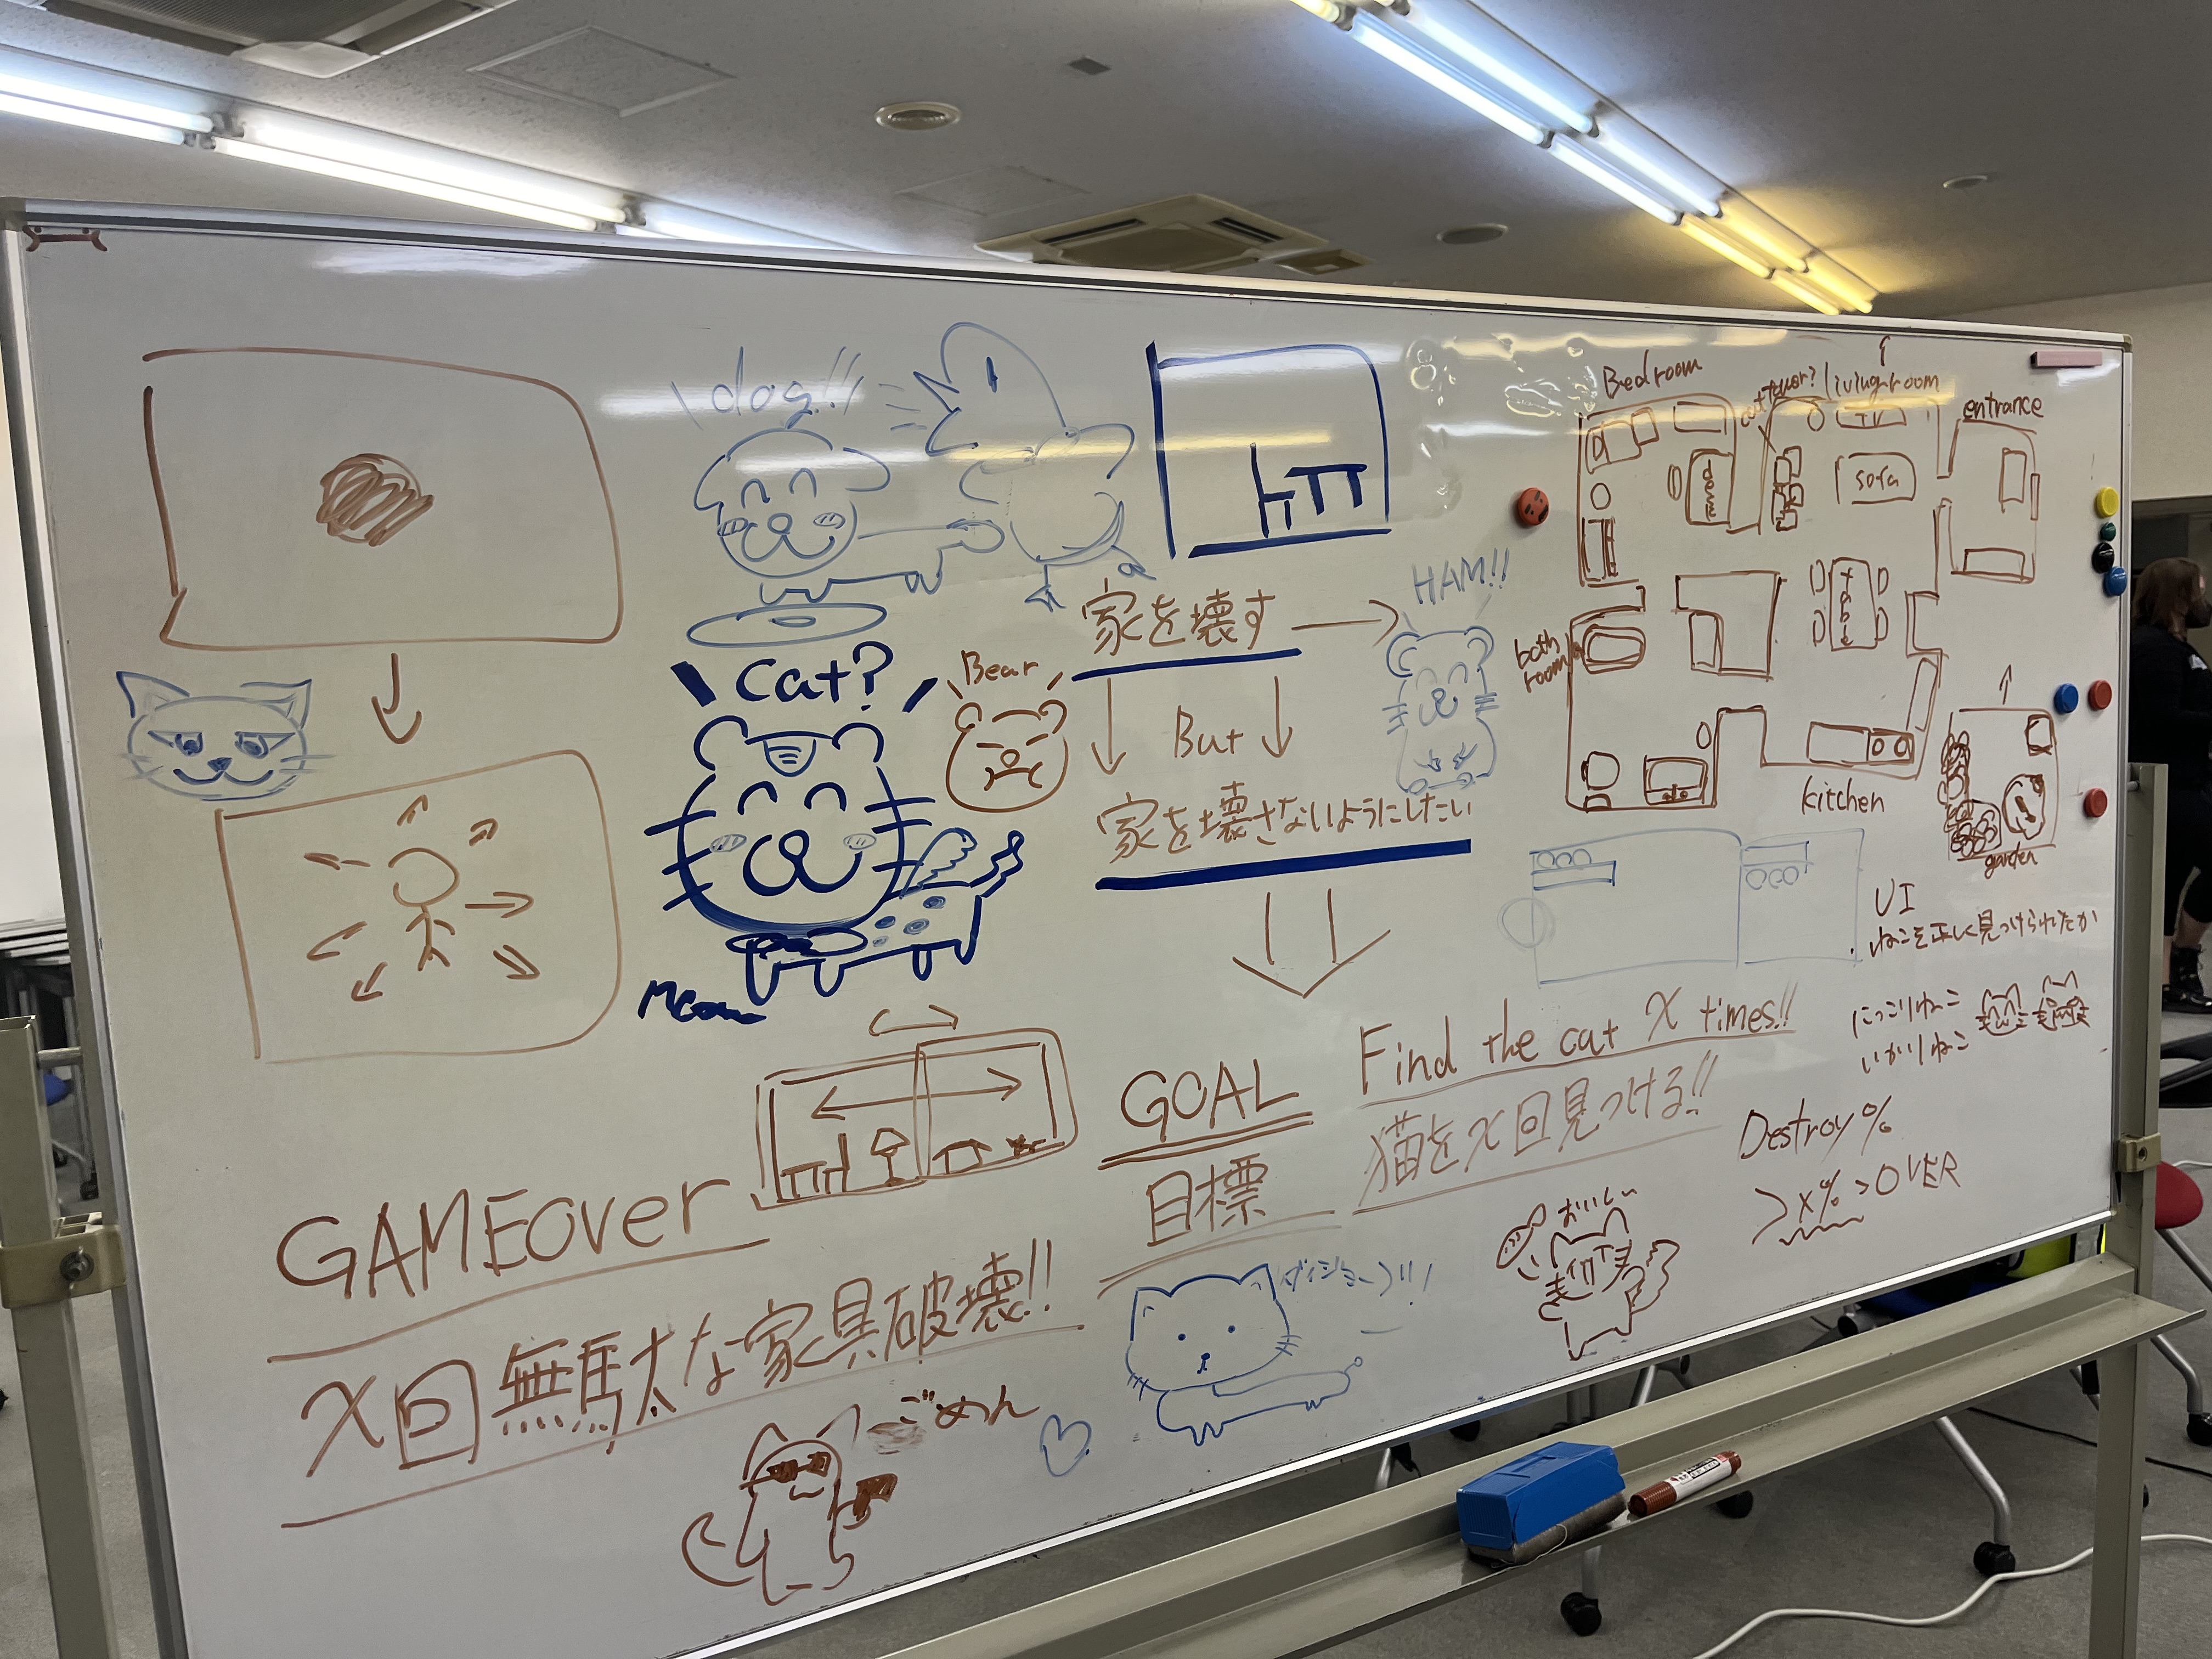 dog!!
Cat?
Bear
Meow
家を壊す
HAM!!
But
家を壊さないようにしたい
Bedroom
cat tower?
livingroom
entrance
TV
sofa
table
bath room
kitchen
garden
UI
ねこを正しく見つけられたか
にっこりねこ
いかりねこ
GOAL
目標
Find the cat X times!!
猫をX回見つける!!
Destroy%
>X%>OVER
GAMEover
X回無駄な家具破壊!!
ごめん
おいしい